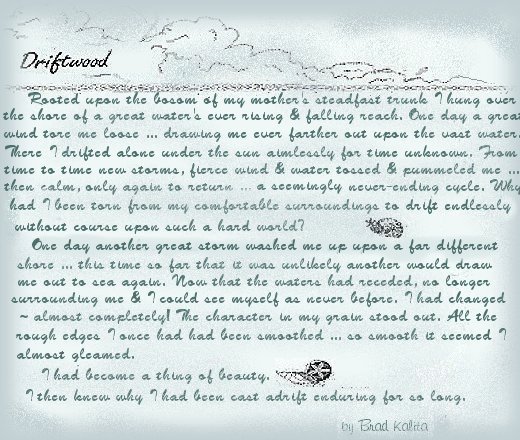 Driftwood
Rooted upon the bosom of my mother's steadfast trunk I hung over
the shore of a great water's ever rising & falling reach. One day a great
wind tore me loose ... drawing me ever farther out upon the vast water.
There I drifted alone under the sun aimlessly for time unknown. From
time to time new storms, fierce wind & water tossed & pummeled me ...
then calm, only again to return ... a seemingly never-ending cycle. Why
had I been torn from my comfortable surroundings to drift endlessly
without course upon such a hard world?
One day another great storm washed me up upon a far different
shore ... this time so far that it was unlikely another would draw
me out to sea again. Now that the waters had receded, no longer
surrounding me & I could see myself as never before. I had changed
~ almost completely! The character in my grain stood out. All the
rough edges I once had had been smoothed ... so smooth it seemed I
almost gleamed.
I had become a thing of beauty.
I then knew why I had been cast adrift enduring for so long.
by Brad Kalita